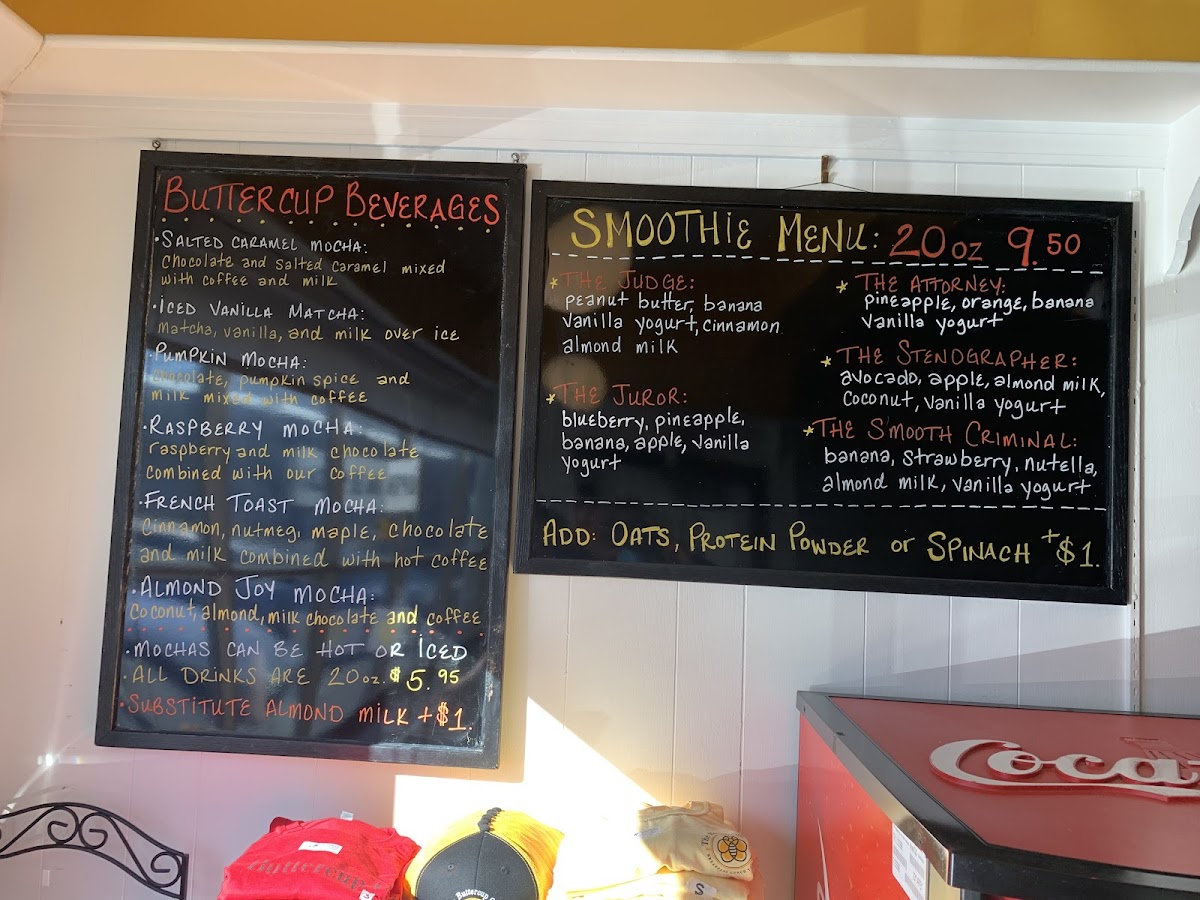 BUTTERCUP BEVERAGES
·SALTED CARAMEL MOCHA:
Chocolate and salted caramel mixed
with coffee and milk
·ICED VANILLA MATCHA:
Matcha, vanilla, and milk over ice
·PUMPKIN MOCHA:
Chocolate, pumpkin spice and
milk mixed with coffee
·RASPBERRY MOCHA:
raspberry and milk chocolate
combined with our coffee
·FRENCH TOAST MOCHA:
Cinnamon, nutmeg, maple, chocolate
and milk combined with hot coffee
·ALMOND JOY MOCHA:
Coconut, almond, milk chocolate and coffee
·MOCHAS CAN BE HOT OR ICED
·ALL DRINKS ARE 20oz. $5.95
·SUBSTITUTE ALMOND MILK +$1.
SMOOTHIE MENU: 20oz 9.50
*THE JUDGE:
peanut butter, banana
vanilla yogurt, cinnamon
almond milk
*THE JUROR:
blueberry, pineapple,
banana, apple, vanilla
yogurt
*THE ATTORNEY:
pineapple, orange, banana
vanilla yogurt
*THE STENOGRAPHER:
avocado, apple, almond milk,
coconut, vanilla yogurt
*THE SMOOTH CRIMINAL:
banana, strawberry, nutella,
almond milk, vanilla yogurt
ADD: OATS, PROTEIN POWDER or SPINACH +$1.
Coca
Buttercup
Buttercup
S